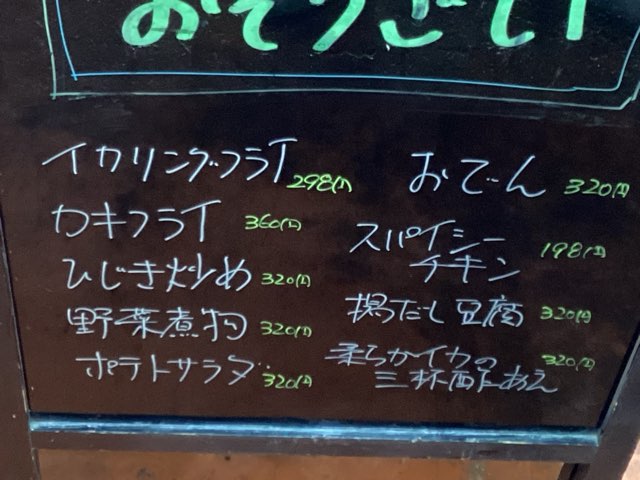 おそうざい
イカリングフライ 298円
カキフライ 360円
ひじき炒め 320円
野菜煮物 320円
ポテトサラダ 320円
おでん 320円
スパイシー
チキン 198円
揚だし豆腐 320円
柔らかイカの
三杯酢あえ 320円